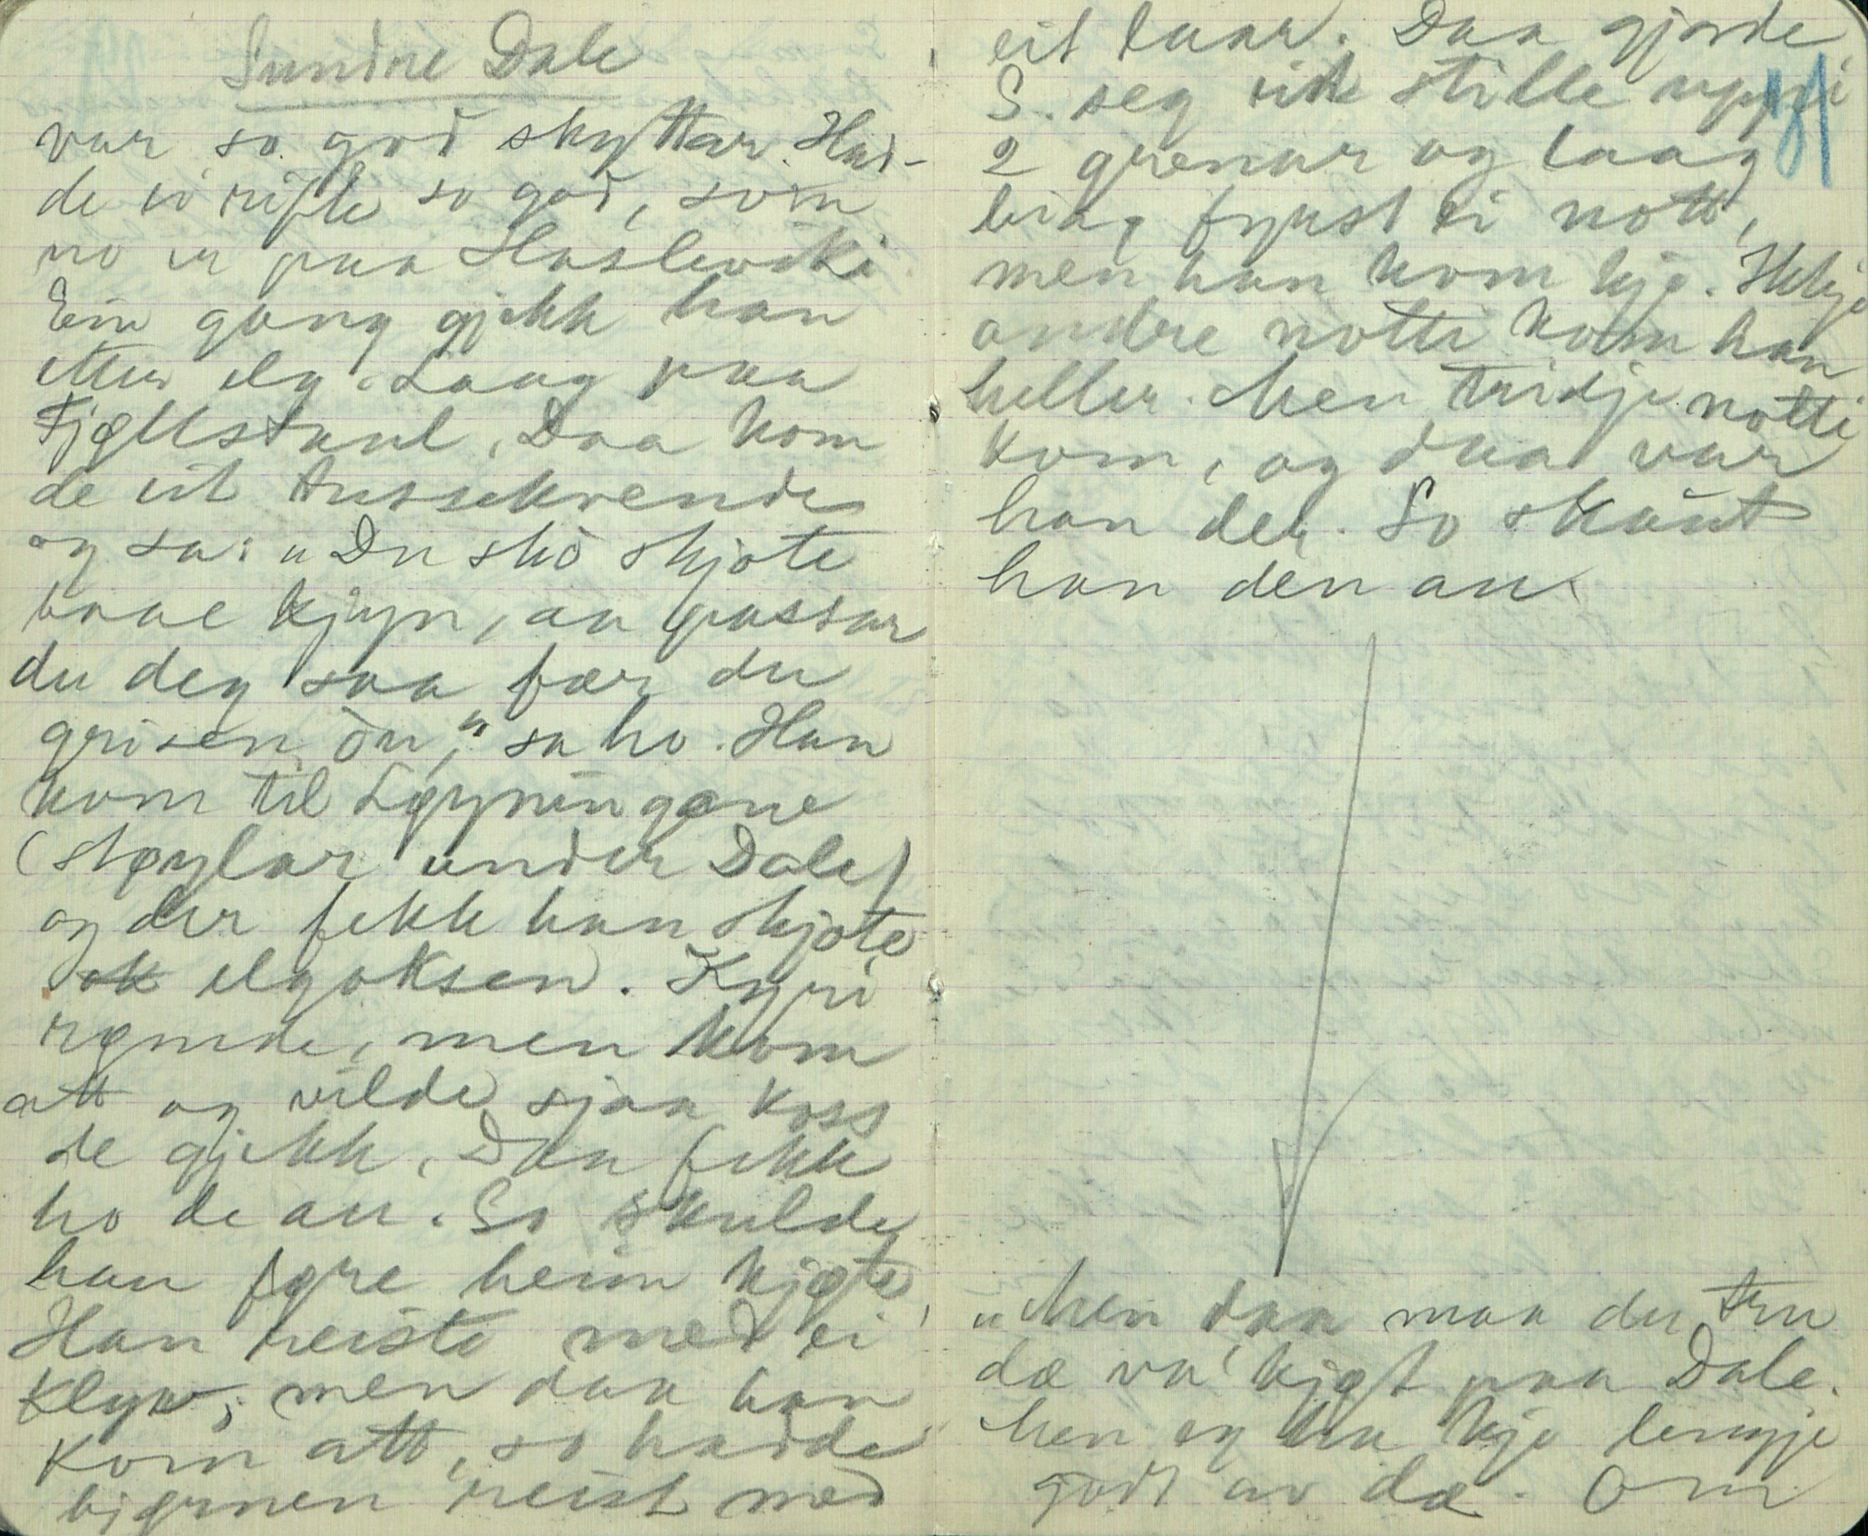 Sundre Dale
var so god skyttar. Had-
de ei rifle so god, som
no er paa Hasleviki
Ein gong gjekk han
etter elg. Laag paa
Fjøllstaul. Daa kom
de eit tussekvende
og sa: "Du sko skjote
baae kjyn, aa passar
du deg saa fær du
grisen òu," sa ho. Han
kom til Løyningane
(støylar under Dale)
og der fekk han skjote
ok elgoksen. Kyri
rømde, men kom
att og vilde sjaa koss
de gjekk. Daa fekk
ho de au. So skulde
han føre heim kjøte
Han reiste med ei
kløv, men daa han
kom att, so hadde
bjørnen reist med
eit laar. Daa gjorde
S. seg stille uppi
2 grenar og laag
fyrst ei nott,
men han kom kje. Ikkje
andre notti kom han
heller. Men tridje notti
kom, og daa var
han der. So skaut
han den au.
"Men daa maa du tru
dæ va' kjøt paa Dale.
Men eg ha kje lengje
godt av dæ. Om
91